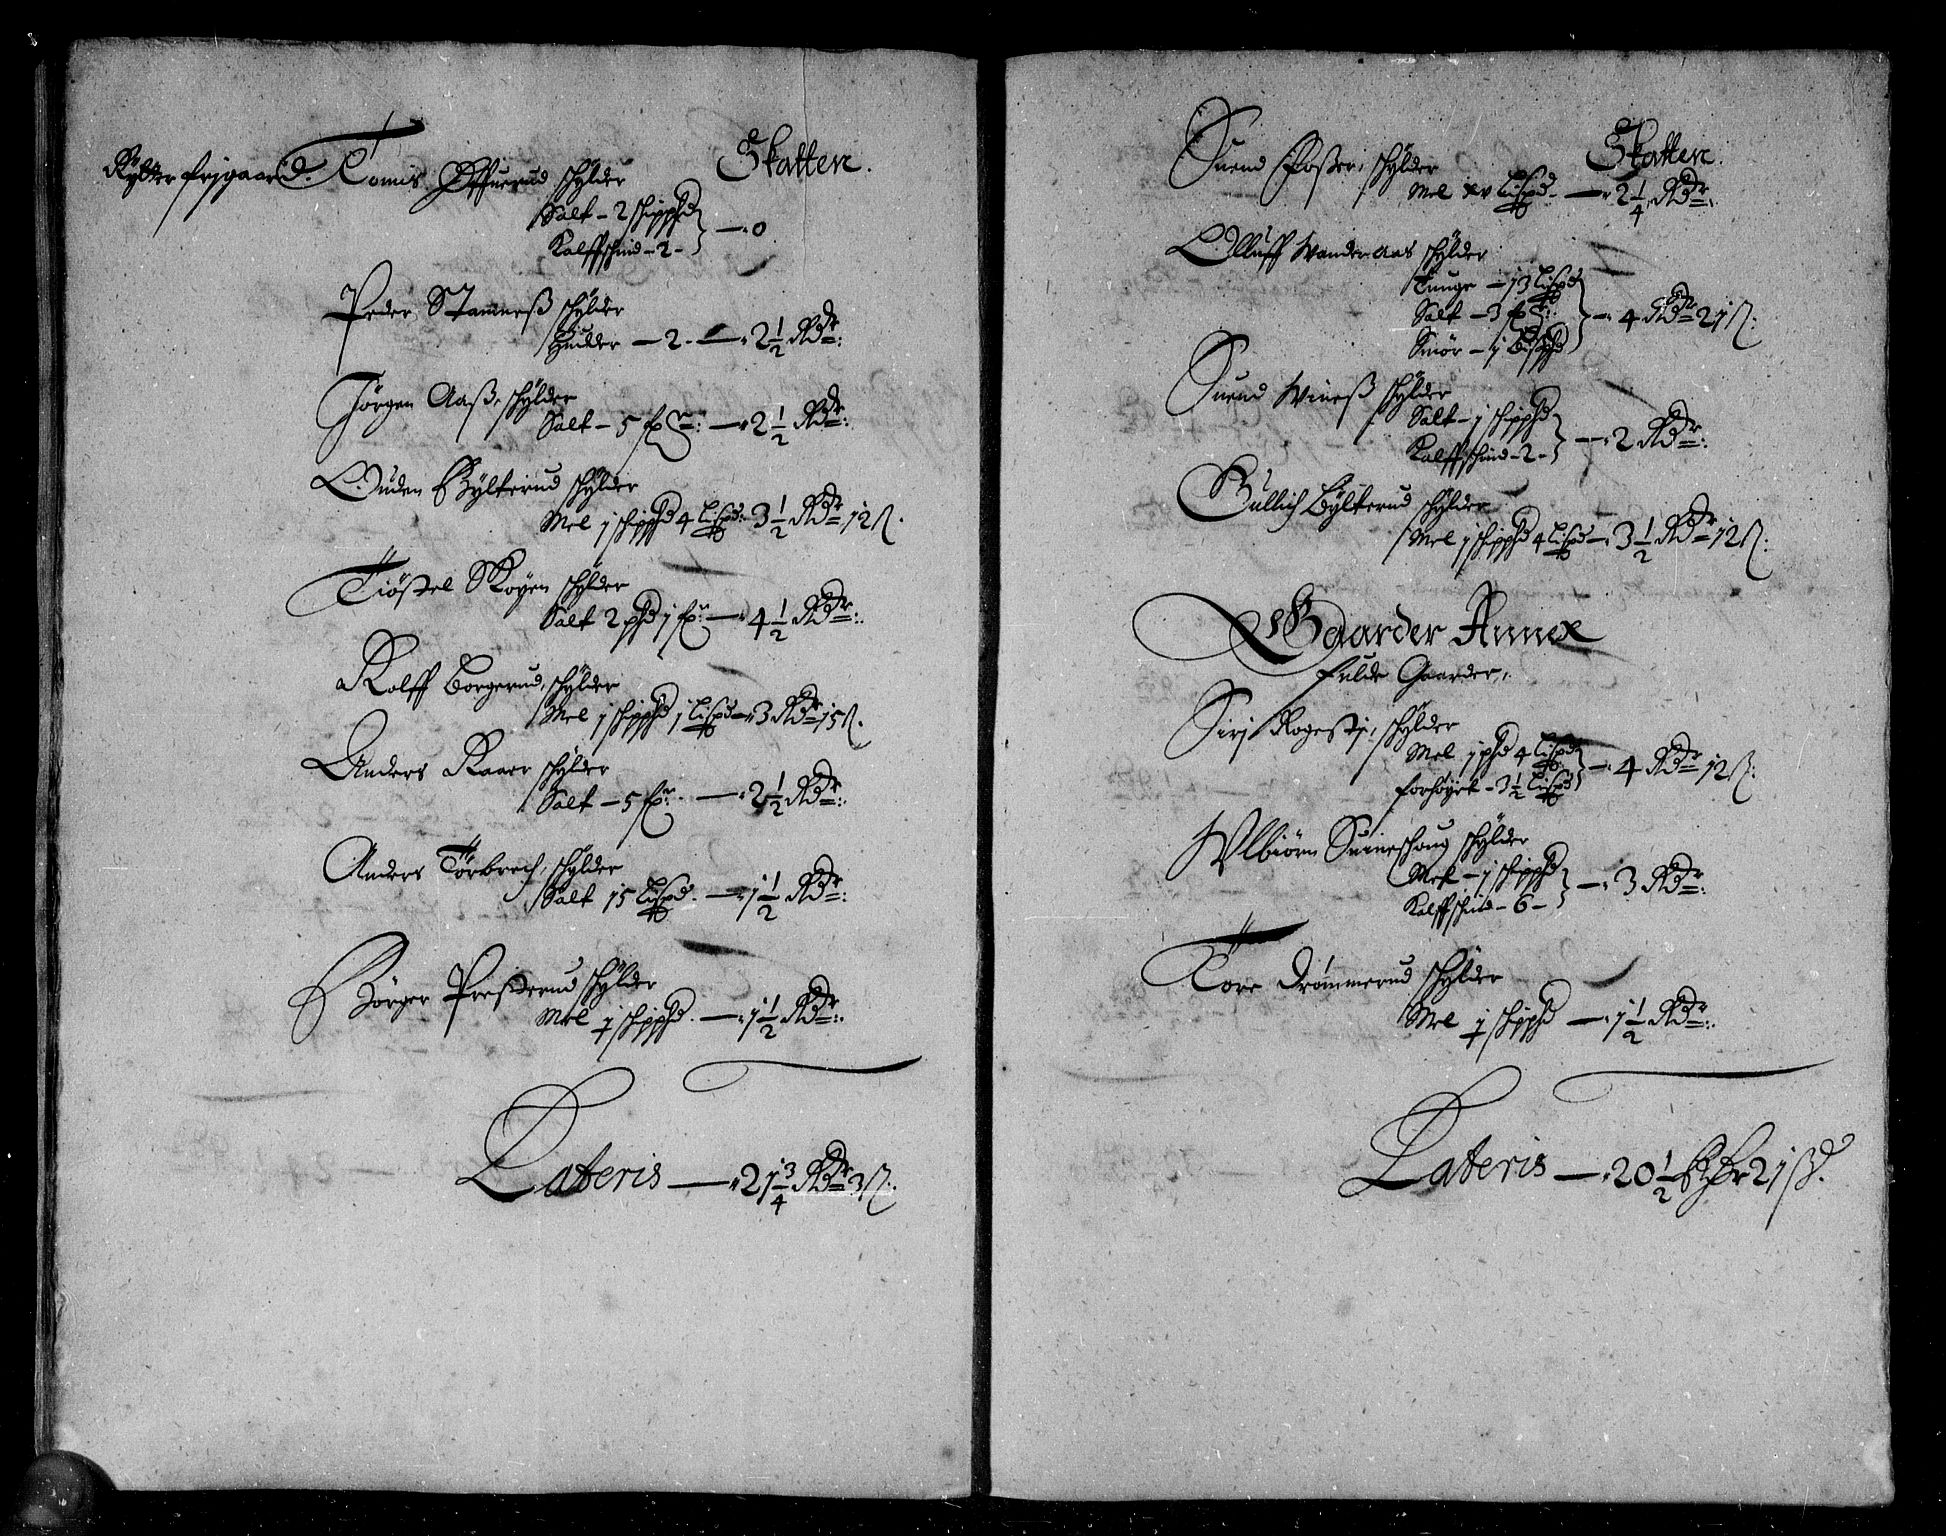 Skatten.
Rytter frjgaard. Tomis Offuerud schylder
Salt - 2 schippd
Kalffschind - 2 - — 0
Peder Stamneß schylder
Huder — 2 — 2 1/2 Rdr:
Jörgen Aaß, schylder
Salt - 5 — 2 1/2 Rdr:
Ouden Bylterud schylder
Mel j schippd 4 Lispd: 3 1/2 Rdr 12 ß.
Tiöstel Skoyen schylder
Salt 2 phd j — 4 1/2 Rdr:
Rolff Borgerud, schylder
Mel j schippd j Lispd — 3 Rdr 15 ß.
Anders Kaaer schylder
Salt — 5 — 2 1/2 Rdr:
Anders Törbrech, schylder
Salt 15 Lispd. — 1 1/2 Rdr:
Börger Presterud schylder
Mel schippd. — 1 1/2 Rdr:
Lateris — 21 3/4 Rdr 3 ß:
Skatten.
Suend Foßer, schylder
Mel xv Lispd — 2 1/4 Rdr:
Olluff Wander aas schylder
Tunge — 13 Lispd
Salt — 3
Smör — j Bispd — 4 Rdr 21 ß:
Suend Wineß schylder
Salt — j schippd
Kalffschind — 2 — — 2 Rdr:
Gullich Bylterud schylder
Mel j schippd 4 Lispd — 3 1/2 Rdr 12 ß:
Gaarder Annex
Fulde Gaarder,
Sirj Rogestj, schylder
Mel j phd 4 Lispd
forhöyet — 3 1/2 Lispd — 4 Rdr 12 ß:
Wlbiörn Suineschoug schylder
Mel — j schippd
Kalffschind — 6 — — 3 Rdr:
Tore Drömmerud schylder
Mel schippd — 1 1/2 Rdr:
Lateris — 20 1/2 21 ß.